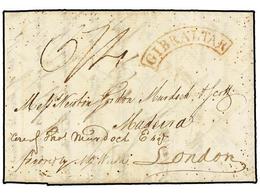 GIBRALTAR
Messrs Newton Gordon Murdoch & Scott
Madeira
Care of Thos Murdoch Esqr
London